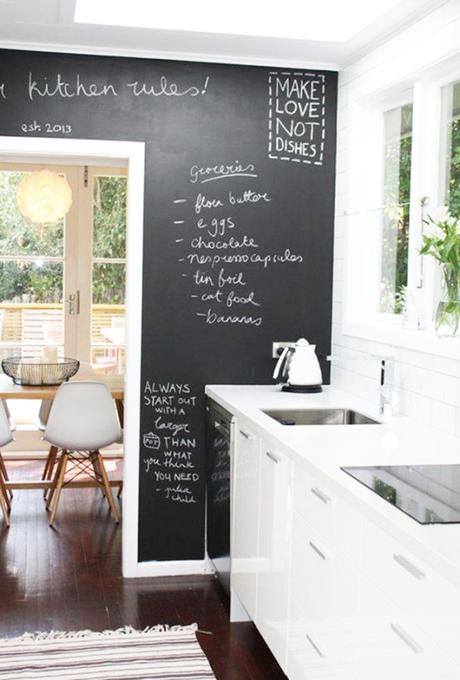 r kitchen rules!
est. 2013
MAKE
LOVE
NOT
DISHES
Groceries
- flour butter
- eggs
- chocolate
- nespresso capsules
- tin foil
- cat food
- bananas
ALWAYS
START OUT
WITH A
larger
POT THAN
WHAT
you think
YOU NEED
- julia
child